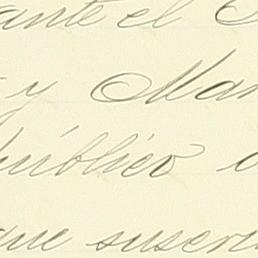 ante el
y Man
público
que suscri